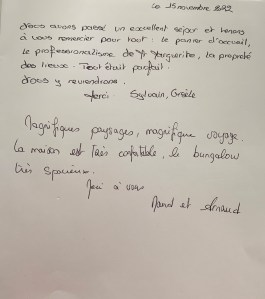 Le 15 novembre 2022
Nous avons passé un excellent séjour et tenons
à vous remercier pour tout : Le panier d'accueil,
le professionnalisme de Marguerite, la propreté
des lieux. Tout était parfait.
Nous y reviendrons.
Merci. Sylvain, Gisèle
Magnifiques paysages, magnifique voyage.
La maison est très confortable, le bungalow
très spacieux.
Merci à vous
et Arnaud